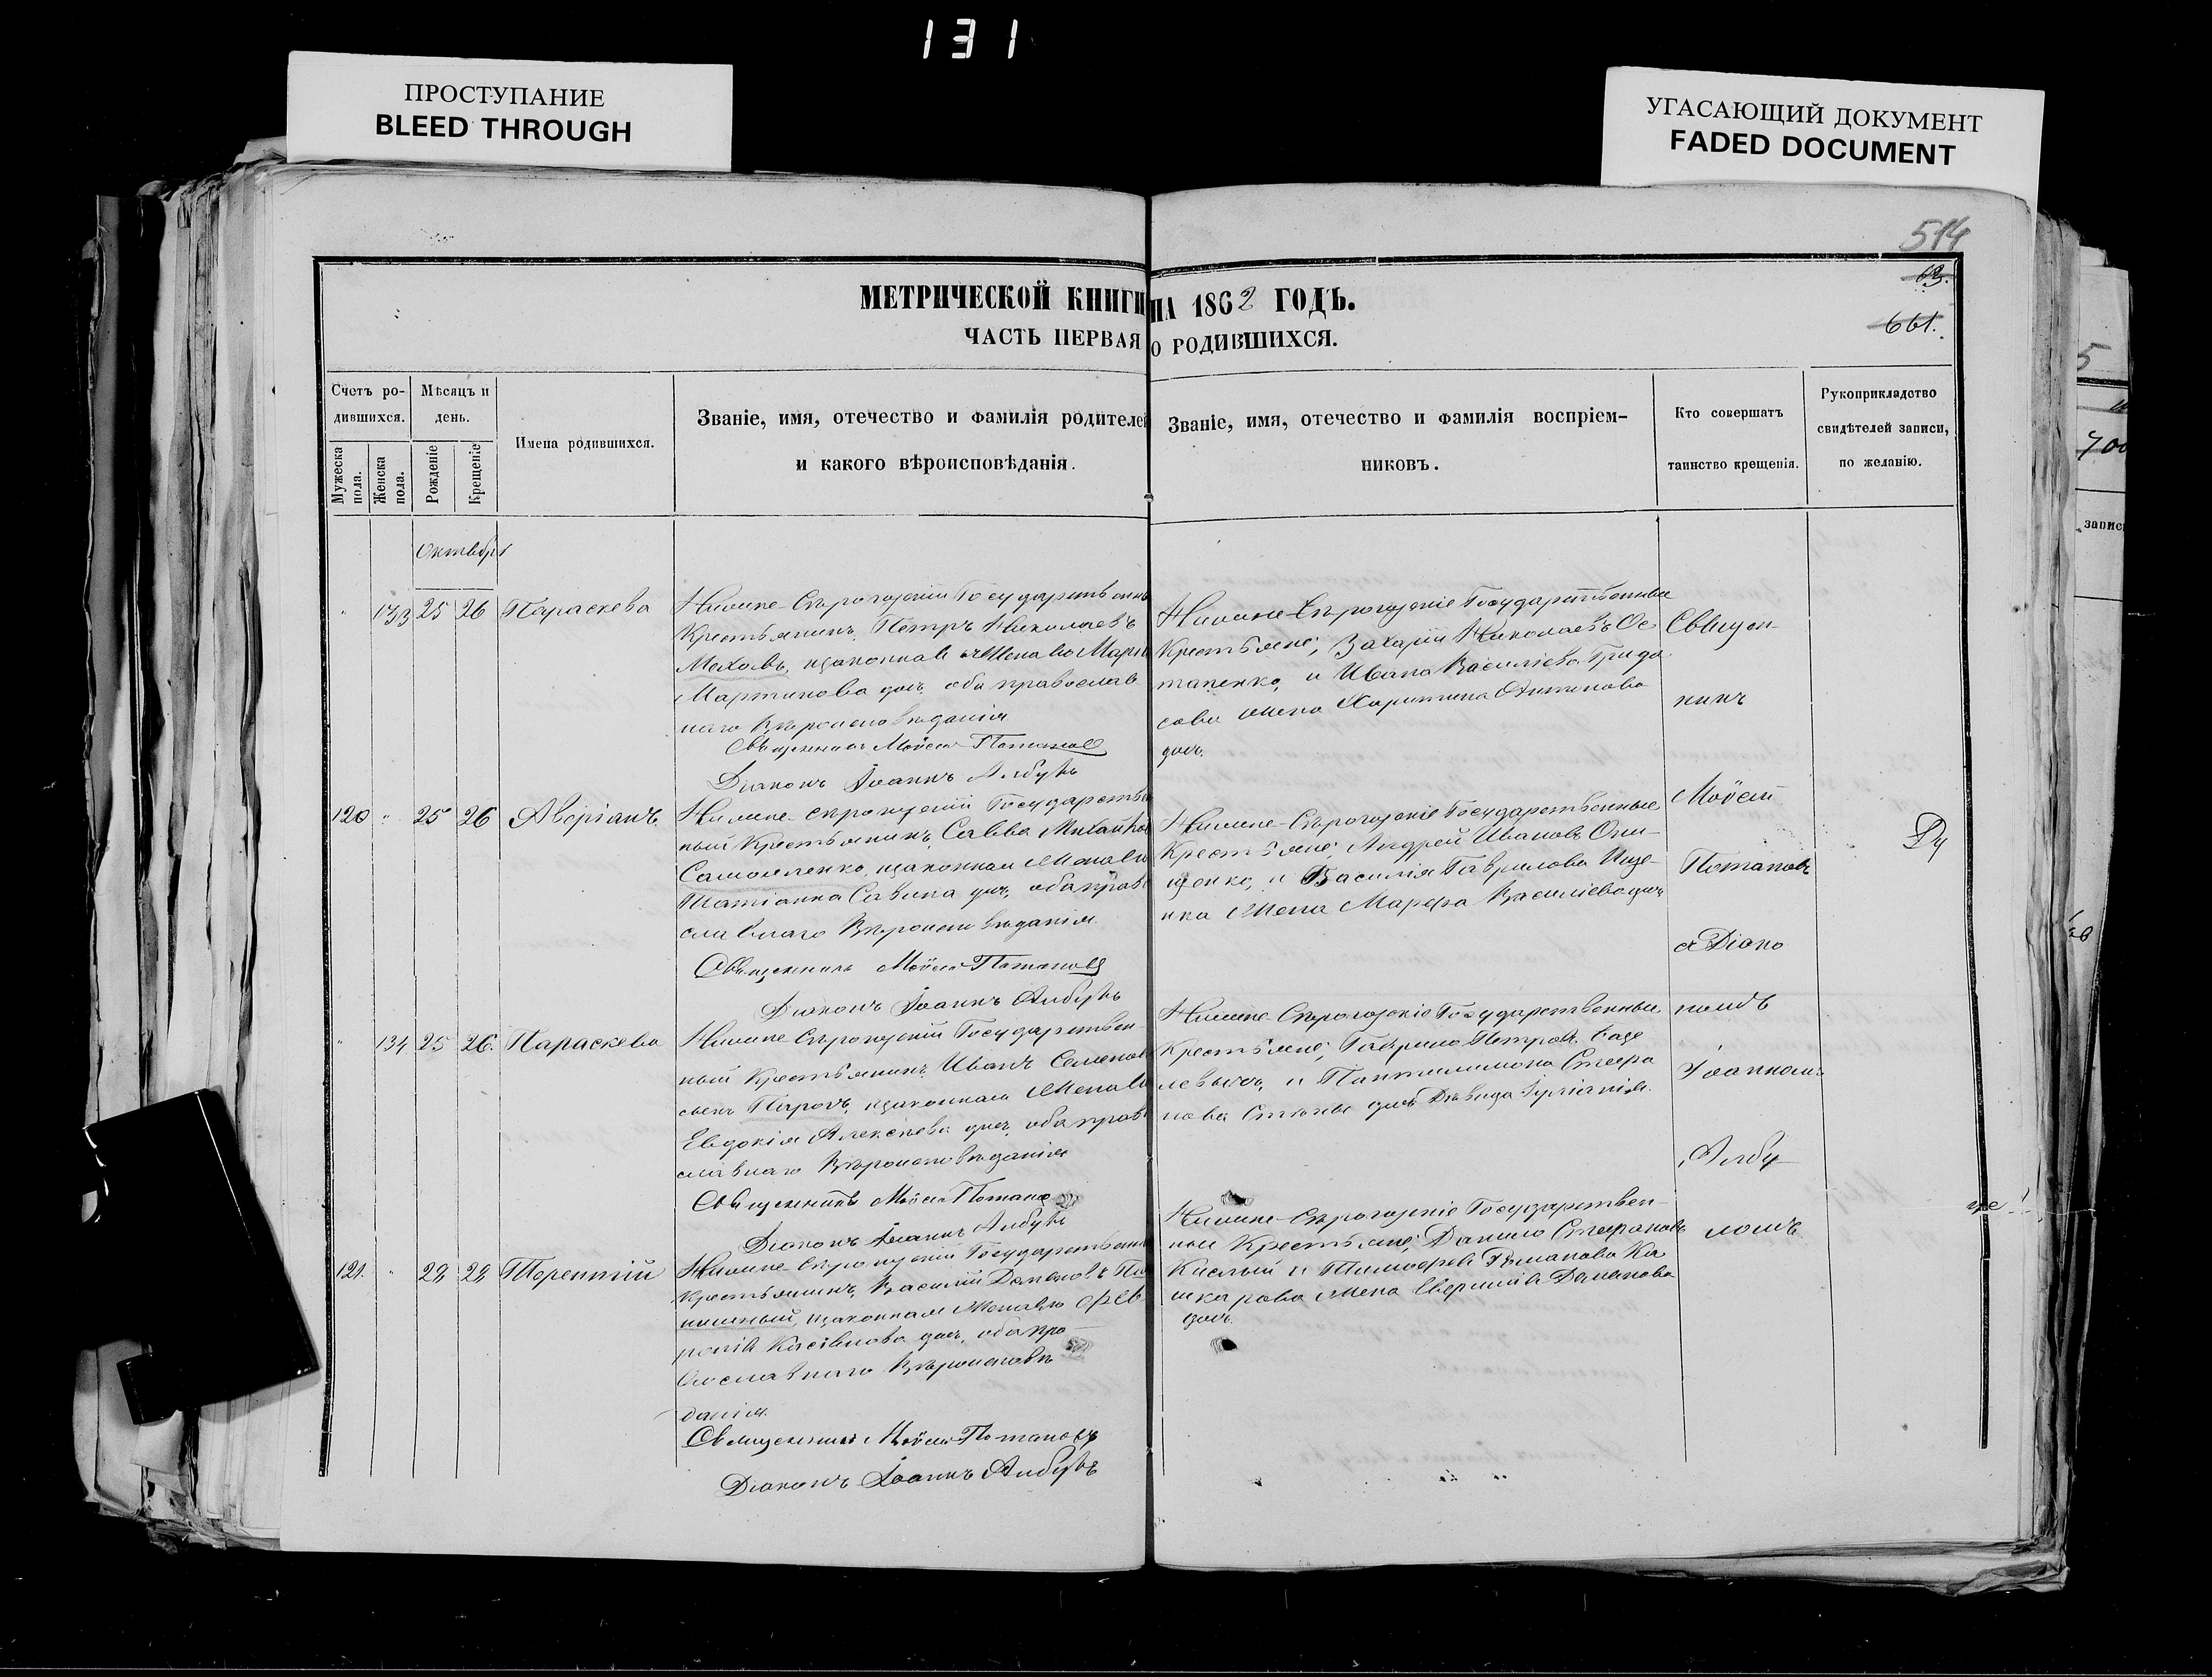 131
ПРОСТУПАНИЕ
BLEED THROUGH
УГАСАЮЩИЙ ДОКУМЕНТ
FADED DOCUMENT
514
63.
661.
МЕТРИЧЕСКОЙ КНИГИ НА 1862 ГОДЪ.
ЧАСТЬ ПЕРВАЯ О РОДИВШИХСЯ.
Счетъ ро-
дившихся.
Мужеска пола.
Женска пола.
Мѣсяцъ и
день.
Рожденіе
Крещеніе
Имена родившихся.
Званіе, имя, отечество и фамилія родителей
и какого вѣроисповѣданія.
Званіе, имя, отечество и фамилія воспріем-
никовъ.
Кто совершатъ
таинство крещенія.
Рукоприкладство
свидѣтелей записи,
по желанію.
Октября
" 133 25 26 Параскева
Нижне-Сѣрогозскій Государственн
Крестьянинъ, Петръ Николаевъ
Маховъ, изаконная жена его Марія
Мартинова доч. оба православ
наго Вѣроисповѣданія
Священникъ Мойсей Потаповъ
Діаконъ Іоаннъ Албулъ
Нижне-Сѣрогозскіе Государственные
Крестьяне; Захарій Николаевъ Ос
тапенко, и Ивана Василіева Грида
сова жена Харитина
доч.
120 " 25 26 Аверіанъ
Нижне-Сѣрогозскій Государстве
ный Крестьянинъ, Савва Михайлов
Самойленко, изаконная жена его
Татіанна Савина доч, оба право
славнаго Вѣроисповѣданія.
Священникъ Мойсей Потаповъ
Діаконъ Іоаннъ Албулъ
Нижне-Сѣрогозскіе Государственные
Крестьяне; Андрей Ивановъ Они-
щенко, и Василія Гаврилова Ище-
нка жена Марфа Василіева доч
" 134 25 26. Параскева
Нижне-Сѣрогозскій Государствен-
ный Крестьянинъ, Иванъ Семенов
сынъ Паровъ, изаконная жена его
Евдокія Алексѣева доч, оба право
славнаго Вѣроисповѣданія
Священникъ Мойсей Потапов
Діаконъ Іоаннъ Албулъ
Нижне-Сѣрогозскіе Государственные
Крестьяне; Гаврило Петров
и Пантилимона Стефа
нова доч
121. " 28 28 Терентій
Нижне-Сѣрогозскій Государственн
Крестьянинъ, Василій
изаконная жена его Фев
ронія доч, оба пра
вославнаго Вѣроисповѣ
данія.
Священникъ Мойсей Потаповъ
Діаконъ Іоаннъ Албулъ
Нижне-Сѣрогозскіе Государствен-
ные Крестьяне; Данило Стефановъ
Кислый и Тимофея Романова Ка
шкарова жена
доч.
Священ-
никъ
Мойсей
Потаповъ
с Діако
номъ
Іоанномъ
Албу-
ломъ
Ду